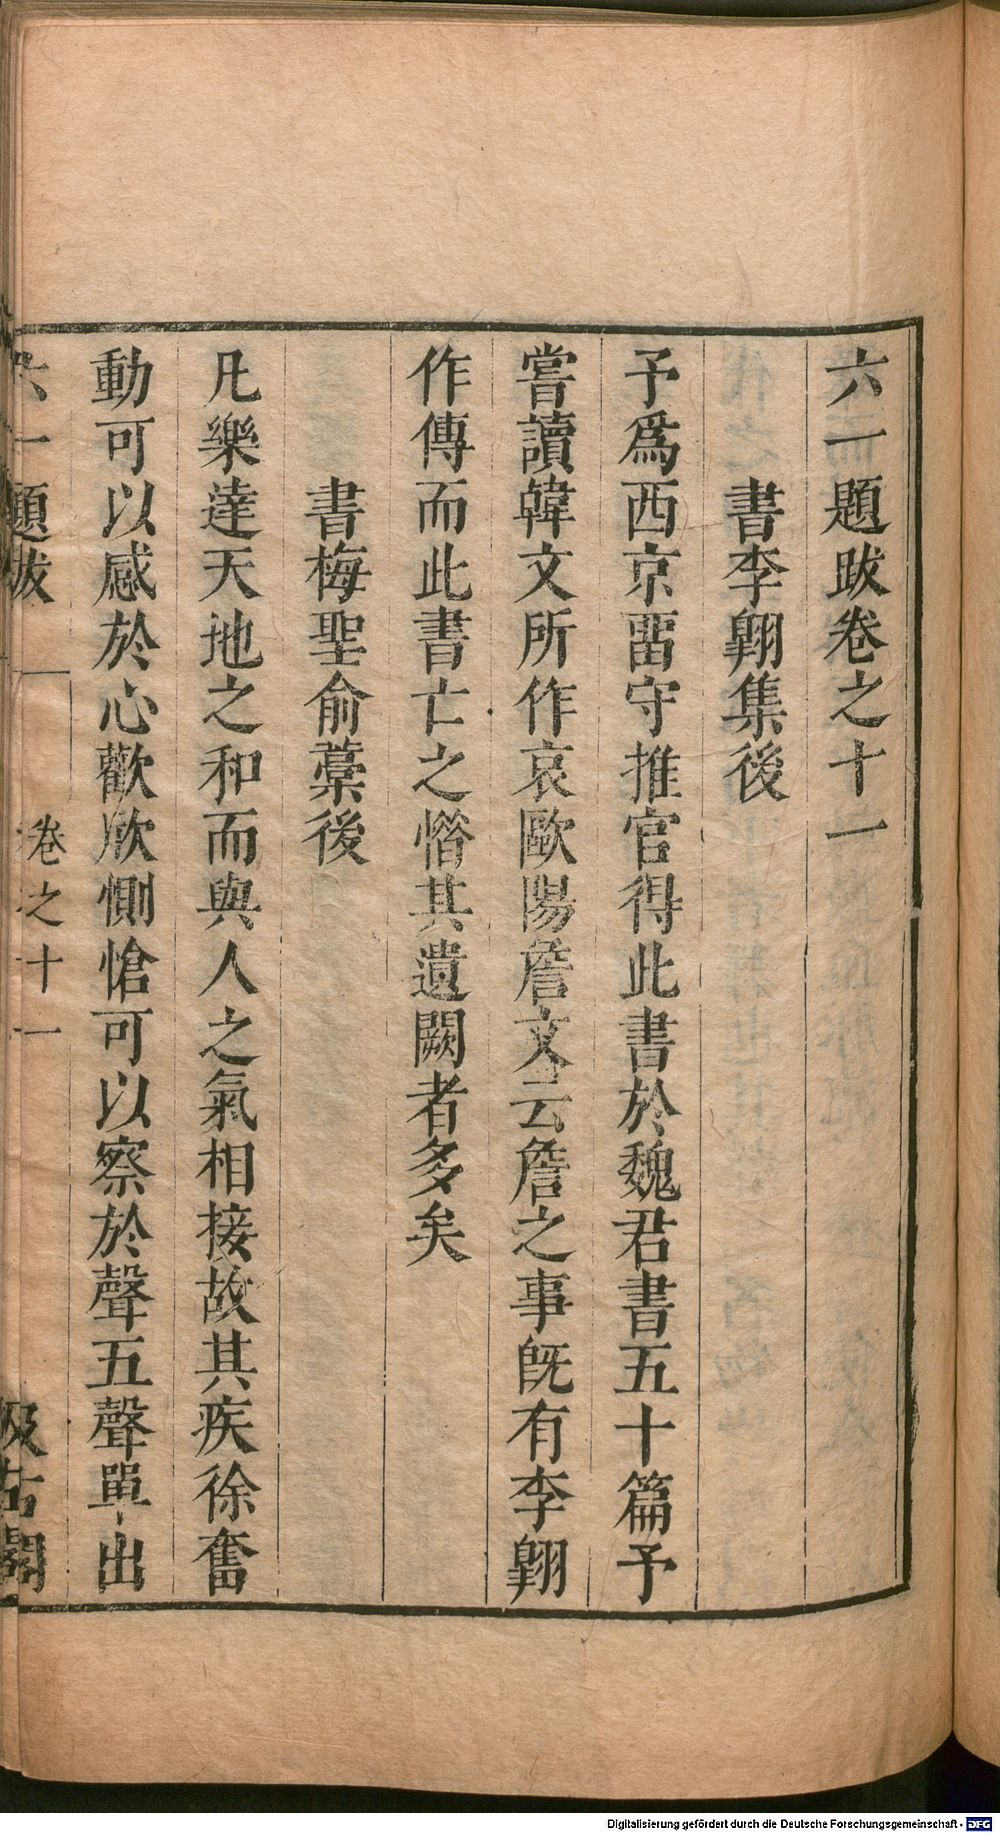 六一題跋卷之十一
書李翺集後
予爲西京畱守推官得此書於魏君書五十篇予
嘗讀韓文所作哀歐陽詹文云詹之事旣有李翺
作傳而此書亡之惜其遺闕者多矣
書梅聖俞藁後
凡樂達天地之和而與人之氣相接故其疾徐奮
動可以感於心歡欣惻愴可以察於聲五聲單出
六一題跋 卷之十一 汲古閣
Digitalisierung gefördert durch die Deutsche Forschungsgemeinschaft - DFG